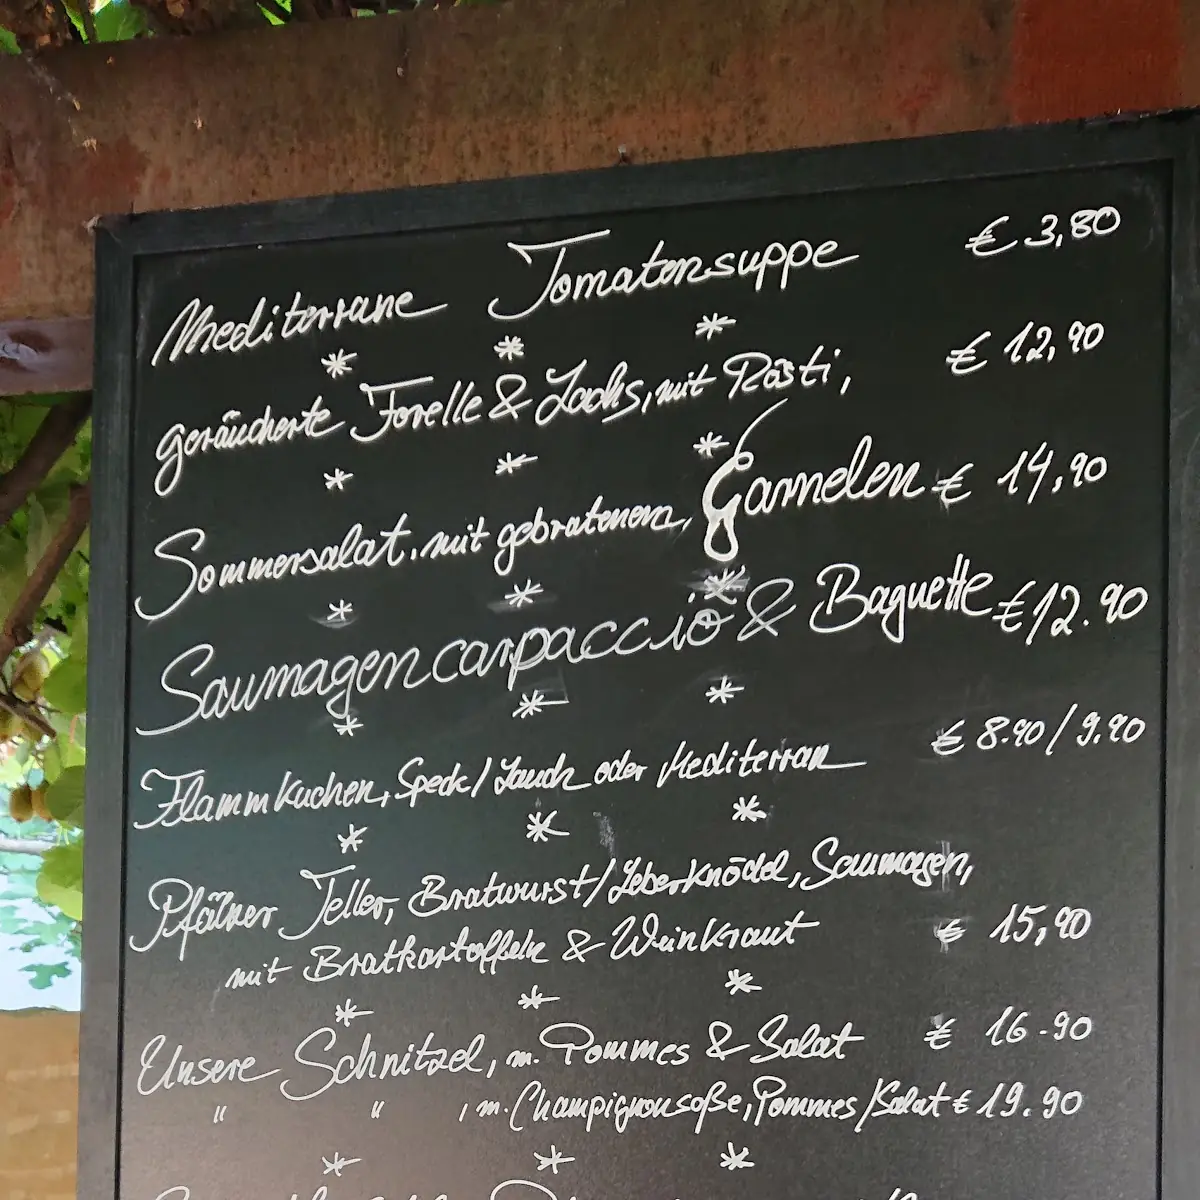 Mediterrane Tomatensuppe € 3,80
* * *
geräucherte Forelle & Lachs, mit Rösti, € 12,90
* * *
Sommersalat, mit gebratenen, Garnelen € 14,90
* * *
Saumagencarpaccio & Baguette € 12.90
* * *
Flammkuchen, Speck/Lauch oder Mediterran € 8.90/9.90
* * *
Pfälzer Teller, Bratwurst/Leberknödel, Saumagen,
mit Bratkartoffeln & Weinkraut € 15,90
* * *
Unsere Schnitzel, m. Pommes & Salat € 16.90
" " , m. Champignonsoße, Pommes/Salat € 19.90
* * *